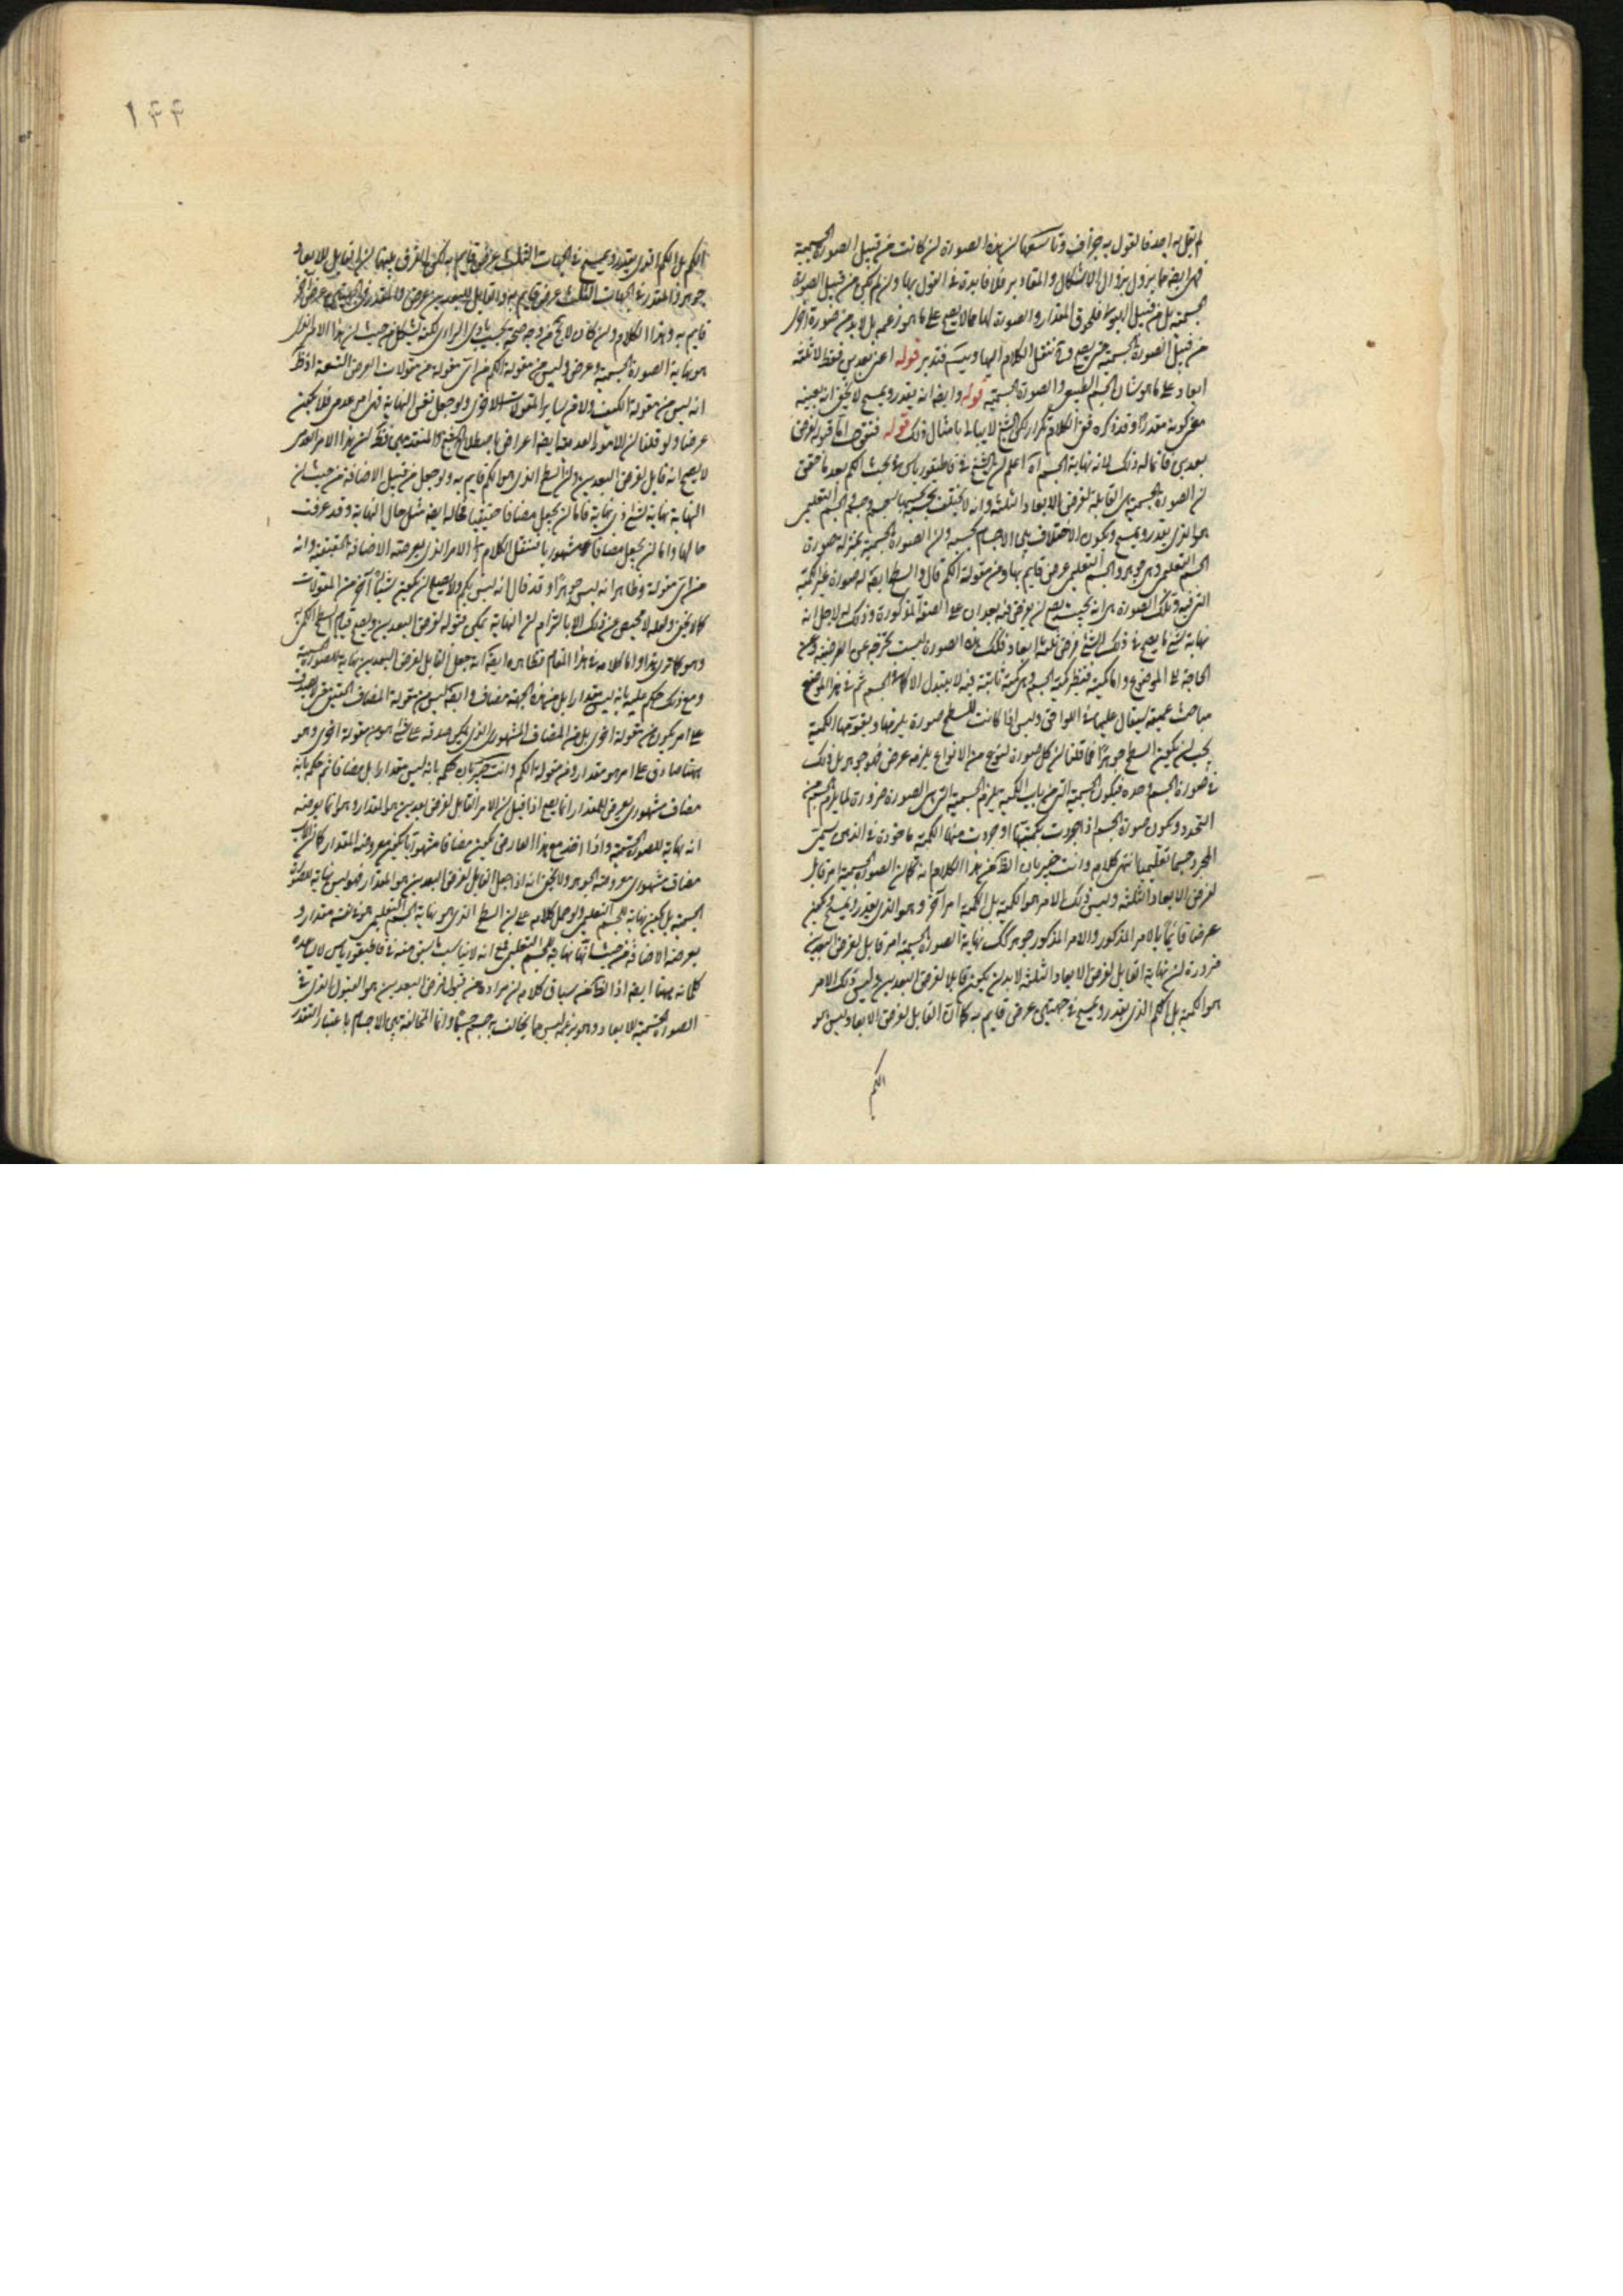 لم يقل به احد فالقول به جزاف وتاسعها لن هذه الصورة لن كانت من قبيل الصورة الجسمية
فهى ايضا مما يزول بزوال الاشكال والمقادير فلا فايدة فى القول بها ولن لم تكن من قبيل الصورة
الجسمية بل من قبيل الهيولى فلحوق المقدار والصورة لها مما لا يصح على ما هو زعمه بل لابد من صورة اخرى
من قبيل الصورة الجسمية حتى يصح وح ننقل الكلام اليها ويتسـ فتدبر قوله اعنى بعدين فقط لا ثلثة
ابعاد على ما هو شان الجسم الطبيعى والصورة الجسمية قوله وايضا انه يقدر ويمسح لا يخفى انه بعينه
معنى كونه مقدرا وقد ذكره ففى الكلام تكرار لكن الشيخ لا يبالى بامثال ذلك قوله فنقول اما قبوله لفرض
بعدين فانما له ذلك لانه نهاية الجسم آه اعلم لن الشيخ فى قاطيغورياس فى بحث الكم بعد ما حقق
لن الصورة الجسمية هى القابلة لفرض الابعاد الثلثة وانه لا يختلف بحسبها جسم وجسم والجسم التعليمى
هو الذى يقدر ويمسح ويكون الاختلاف بين الاجسام بحسبه ولن الصورة الجسمية بمنزلة صورة
الجسم التعليمى وهى جوهر والجسم التعليمى عرض قايم بها ومن مقولة الكم قال والسطح ايضا له صورة غير الكمية
التى فيه وتلك الصورة هى انه بحيث يصح لن يفرض فيه بعدان على الصفة المذكورة وذلك له لاجل انه
نهاية شئ يصح فى ذلك الشئ فرض ثلثة ابعاد فلك هذه الصورة ليست تخرجه عن العرضية وعن
الحاجة الى الموضوع واما كمية فنظير كمية الجسم وهى كمية ثابتة فيه لا يتبدل الا كما فى الجسم ثم فى هذا الموضع
مباحث عميقة ليقال عليها فى اللواحق وليس اذا كانت للسطح صورة يلزمها ويقومها الكمية
يجب لن يكون السطح جوهرا فما قلنا لن كل صورة لنوع من الانواع يلزمه عرض فهو جوهر بل ذلك
فى صورة الجسم وحده فيكون الجسمية التى من باب الكمية يلزم الجسمية التى هى الصورة ضرورة لما يلزم الجسم من
التحدد ويكون صورة الجسم اذا جردت بكميتها او جردت منها الكمية ماخوذة فى الذهن سمى
المجرد جسما تعليميا انتهى كلامه وانت خبير بان الظ من هذا الكلام انه كما ان الصورة الجسمية امر قابل
لفرض الابعاد الثلثة وليس ذلك الامر هو الكمية بل الكمية امر آخر وهو الذى يقدر ويمسح ويكون
عرضا قائما بالامر المذكور والامر المذكور جوهر كك نهاية الصورة الجسمية امر قابل لفرض البعدين
ضرورة لن نهاية القابل لفرض الابعاد الثلثة لابد لن يكون قابلا لفرض البعدين وليس ذلك الامر
هو الكمية بل الكم الذى يقدر ويمسح فى جهتين عرض قايم به كما ان القابل لفرض الابعاد ليس هو
الكم
١٤٤
الكم بل الكم الذى يقدر ويمسح فى الجهات الثلث عرض قايم به لكن الفرق بينهما لن القابل للابعاد
جوهر والمقدر فى الجهات الثلث عرض قايم به والقابل للبعدين عرض والمقدر فى الجهتين عرض آخر
قايم به وهذا الكلام ولن كان لا يخ من وجه صحة بحسب بادى الراى لكنه يشكل من حيث لن هذا الامر الذى
هو نهاية الصورة الجسمية وعرض وليس من مقولة الكم من اى مقولة من مقولات العرض التسعة اذ ظ
انه ليس من مقولة الكيف ولا من ساير المقولات الاخرى ولو جعل نفس النهاية فهى امر عدمى فلا يكون
عرضا ولو قلنا لن الامور العدمية ايضا اعراض باصطلاح الشيخ والمتقدمين فظ لن هذا الامر العدمى
لا يصح انه قابل لفرض البعدين ولن السطح الذى هو الكم قايم به ولو جعل من قبيل الاضافة من حيث لن
النهاية نهاية لشئ ذى نهاية فاما لن يجعل مضافا حقيقيا فحاله ايضا مثل حال النهاية وقد عرفت
حالها واما لن يجعل مضافا مشهوريا فننقل الكلام الى الامر الذى يعرضه الاضافة الحقيقية وانه
من اى مقولة وظاهر انه ليس جوهرا وقد قال انه ليس بكم ولا يصح لن يكون شيئا آخر من المقولات
كما لا يخفى ولعله لا محيص عن ذلك الا بالتزام لن النهاية يمكن قبوله لفرض البعدين ويصح قيام السطح الكمى به
وهو كما ترى هذا واما كلامه فى هذا المقام فظاهره ايضا انه جعل القابل لفرض البعدين نهاية للصورة الجسمية
ومع ذلك حكم عليه بانه ليس مقدارا بل من هذه الجهة مضاف وايضا ليس من مقولة المضاف الحقيقى حتى لا يصدق
على امر يكون من مقولة اخرى بل من المضاف المشهورى الذى يمكن صدقه على شئ هو من مقولة اخرى وهو
ههنا صادق على امر هو مقدار ومن مقولة الكم وانت خبير بان حكمه بانه ليس مقدارا بل مضافا ثم حكمه بانه
مضاف مشهورى يعرض للمقدار انما يصح اذا قيل لن الامر القابل لفرض بعدين هو المقدار وهو انما يعرضه
انه نهاية للصورة الجسمية واذا اخذ مع هذا العارض يكون مضافا مشهوريا يكون معروضه المقدار كما ان الاب
مضاف مشهورى معروضه الجوهر ولا يخفى انه اذا جعل القابل لفرض البعدين هو المقدار فهو ليس نهاية للصورة
الجسمية بل يكون نهاية للجسم التعليمى ولو حمل كلامه على لن السطح الذى هو نهاية الجسم التعليمى هو فى نفسه مقدار و
يعرضه الاضافة من حيث انها نهاية للجسم التعليمى فمع انه لا يناسب ما سبق منه فى قاطيغورياس لا يساعده
كلماته ههنا ايضا اذ الظ من سياق كلامه لن مراده من قبول فرض البعدين هو القبول الذى فى
الصورة الجسمية للابعاد وهو بزعمه ليس مما يخالف به جسم جسما وانما المخالفة بين الاجسام باعتبار التقدر